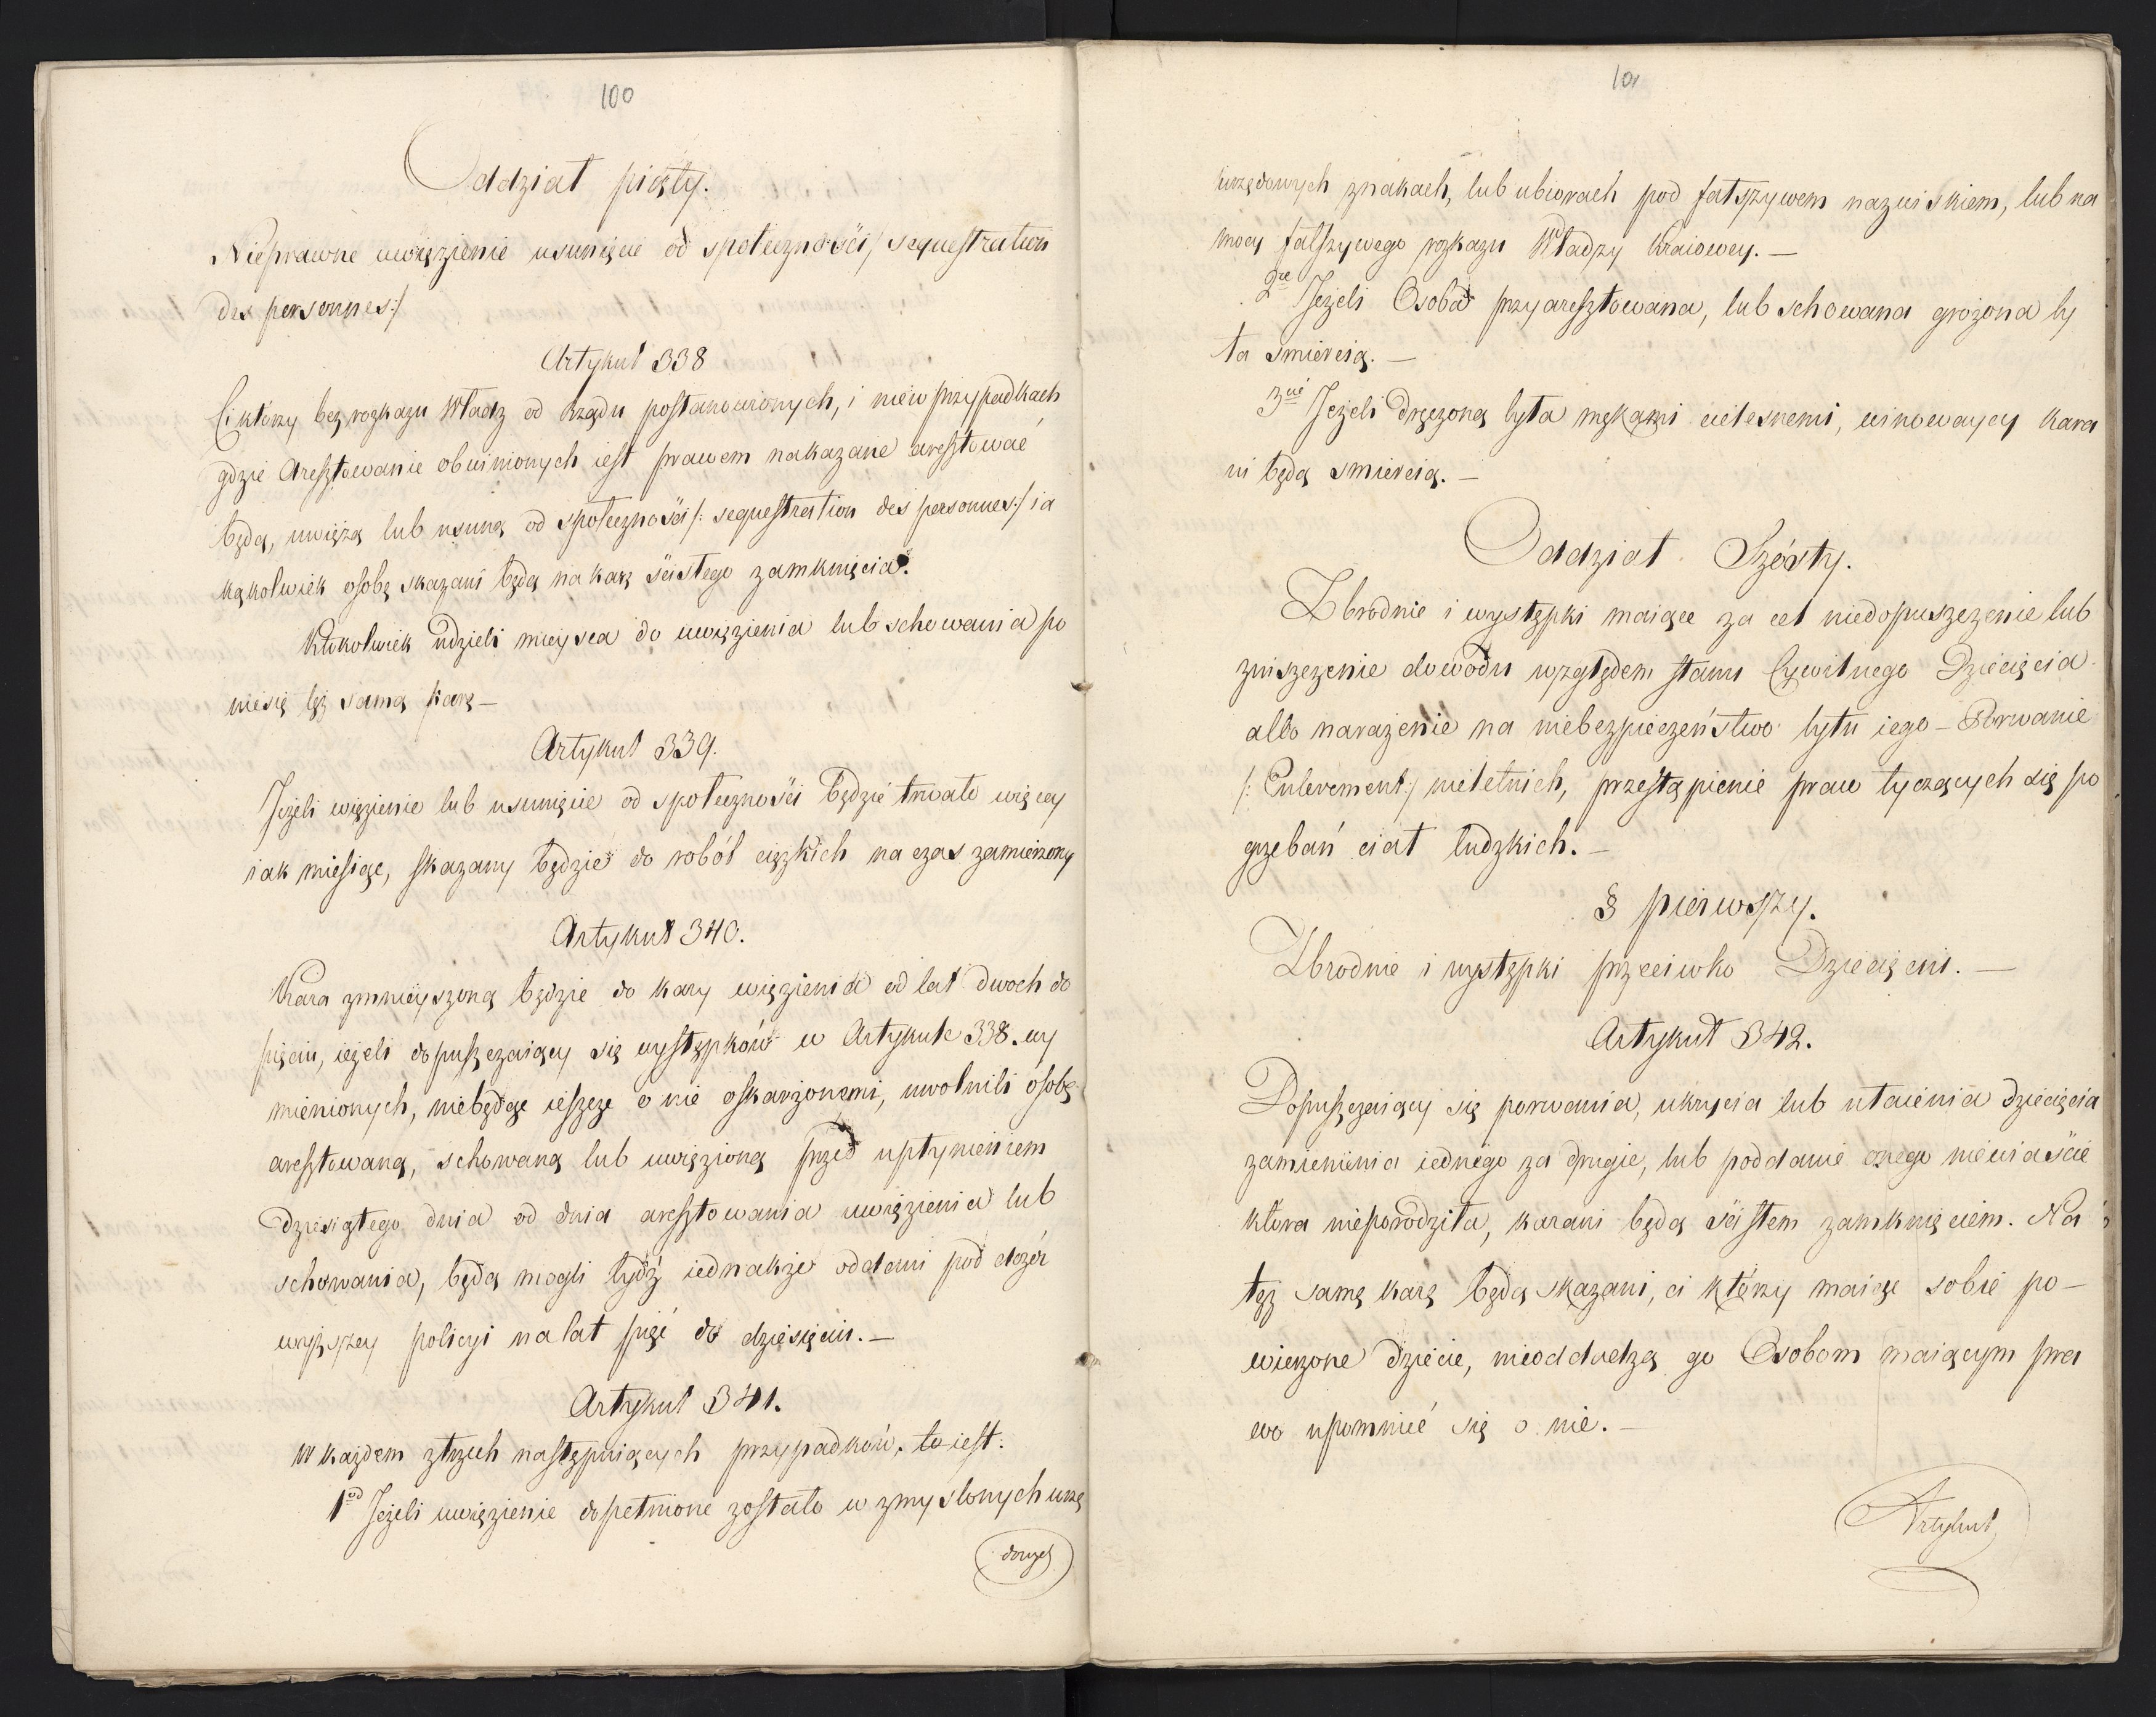 100
Oddział piąty.
Nieprawne uwięzienie usunięcie od społeczności /: sequestration
des personnes:/
Artykuł 338
Ci którzy bez rozkazu Władz od Rządu postanowionych, i nie w przypadkach
gdzie Aresztowanie obwinionych iest prawem nakazane aresztować
będą, uwiężą lub usuną od społeczności /: sequestration des personnes:/ ia
kąkolwiek osobę skazani będą na karę ścisłego zamknięcia.
Ktokolwiek udzieli mieysca do uwięzienia lub schowania po
niesie tęż samą karę —
Artykuł 339.
Jeżeli więzienie lub usunięcie od społeczności będzie trwało więcey
iak miesiąc, skazany będzie do robót ciężkich na czas zamierzony
Artykuł 340.
Kara zmnieyszoną będzie do kary więzienia od lat dwoch do
pięciu, ieżeli dopuszczaiący się występków w Artykule 338. wy
mienionych, niebędąc ieszcze o nie oskarżonemi, uwolnili osobę
aresztowaną, schowaną lub uwięzioną przed upłynieniem
dziesiątego dnia od dnia aresztowania uwięzienia lub
schowania, będą mogli bydź iednakże oddani pod dozór
wyższey policyi na lat pięć do dziesięciu. —
Artykuł 341.
W każdem z trzech następuiących przypadków, to iest:
1od Jeżeli uwięzienie dopełnione zostało w zmyslonych urzę
dowych
101
urzędowych znakach, lub ubiorach pod fałszywem nazwiskiem, lub na
mocy fałszywego rozkazu Władzy Kraiowey. —
2re Jeżeli Osoba przyaresztowana, lub schowana grożona by
ła smiercią. —
3cie Jeżeli dręczoną była mękami cielesnemi, winowaycy kara
ni będą smiercią. —
Oddział Szósty.
Zbrodnie i występki maiące za cel niedopuszczenie lub
zniszczenie dowodu względem stanu Cywilnego Dziecięcia
albo narażenie na niebezpieczeństwo bytu iego — Porwanie
/: Enlevement:/ nieletnich, przestąpienie praw tyczących się po
grzebań ciał ludzkich. —
§ pierwszy.
Zbrodnie i występki przeciwko Dziecięciu. —
Artykuł 342.
Dopuszczaiący się porwania, ukrycia lub utaienia dziecięcia
zamienienia iednego za drugie, lub poddanie onego niewiaście
która nieporodziła, karani będą ścisłem zamknięciem. Na
tęż samę karę będą skazani, ci którzy maiąc sobie po-
wierzone dziecie, nieoddadzą go Osobom maiącym pra
wo upomnieć się o nie. —
Artykuł